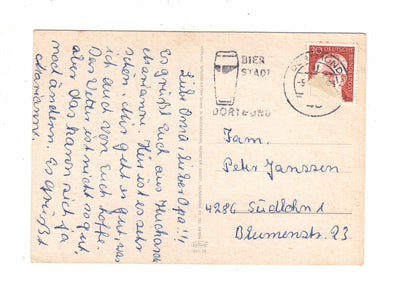 Liebe Oma, lieber Opa!!
Es grüßt Euch aus
Marianne. Hier ist es sehr
schön. Mir geht es gut, was
ich auch von Euch hoffe.
Das Wetter ist nicht so gut,
aber das kann sich ja
noch ändern. Es grüßt
Marianne.
BIER
STADT
DORTMUND
30
DEUTSCHE
BUNDESPOST
Fam.
Peter Janssen
4286 Südlohn 1
Blumenstr. 23